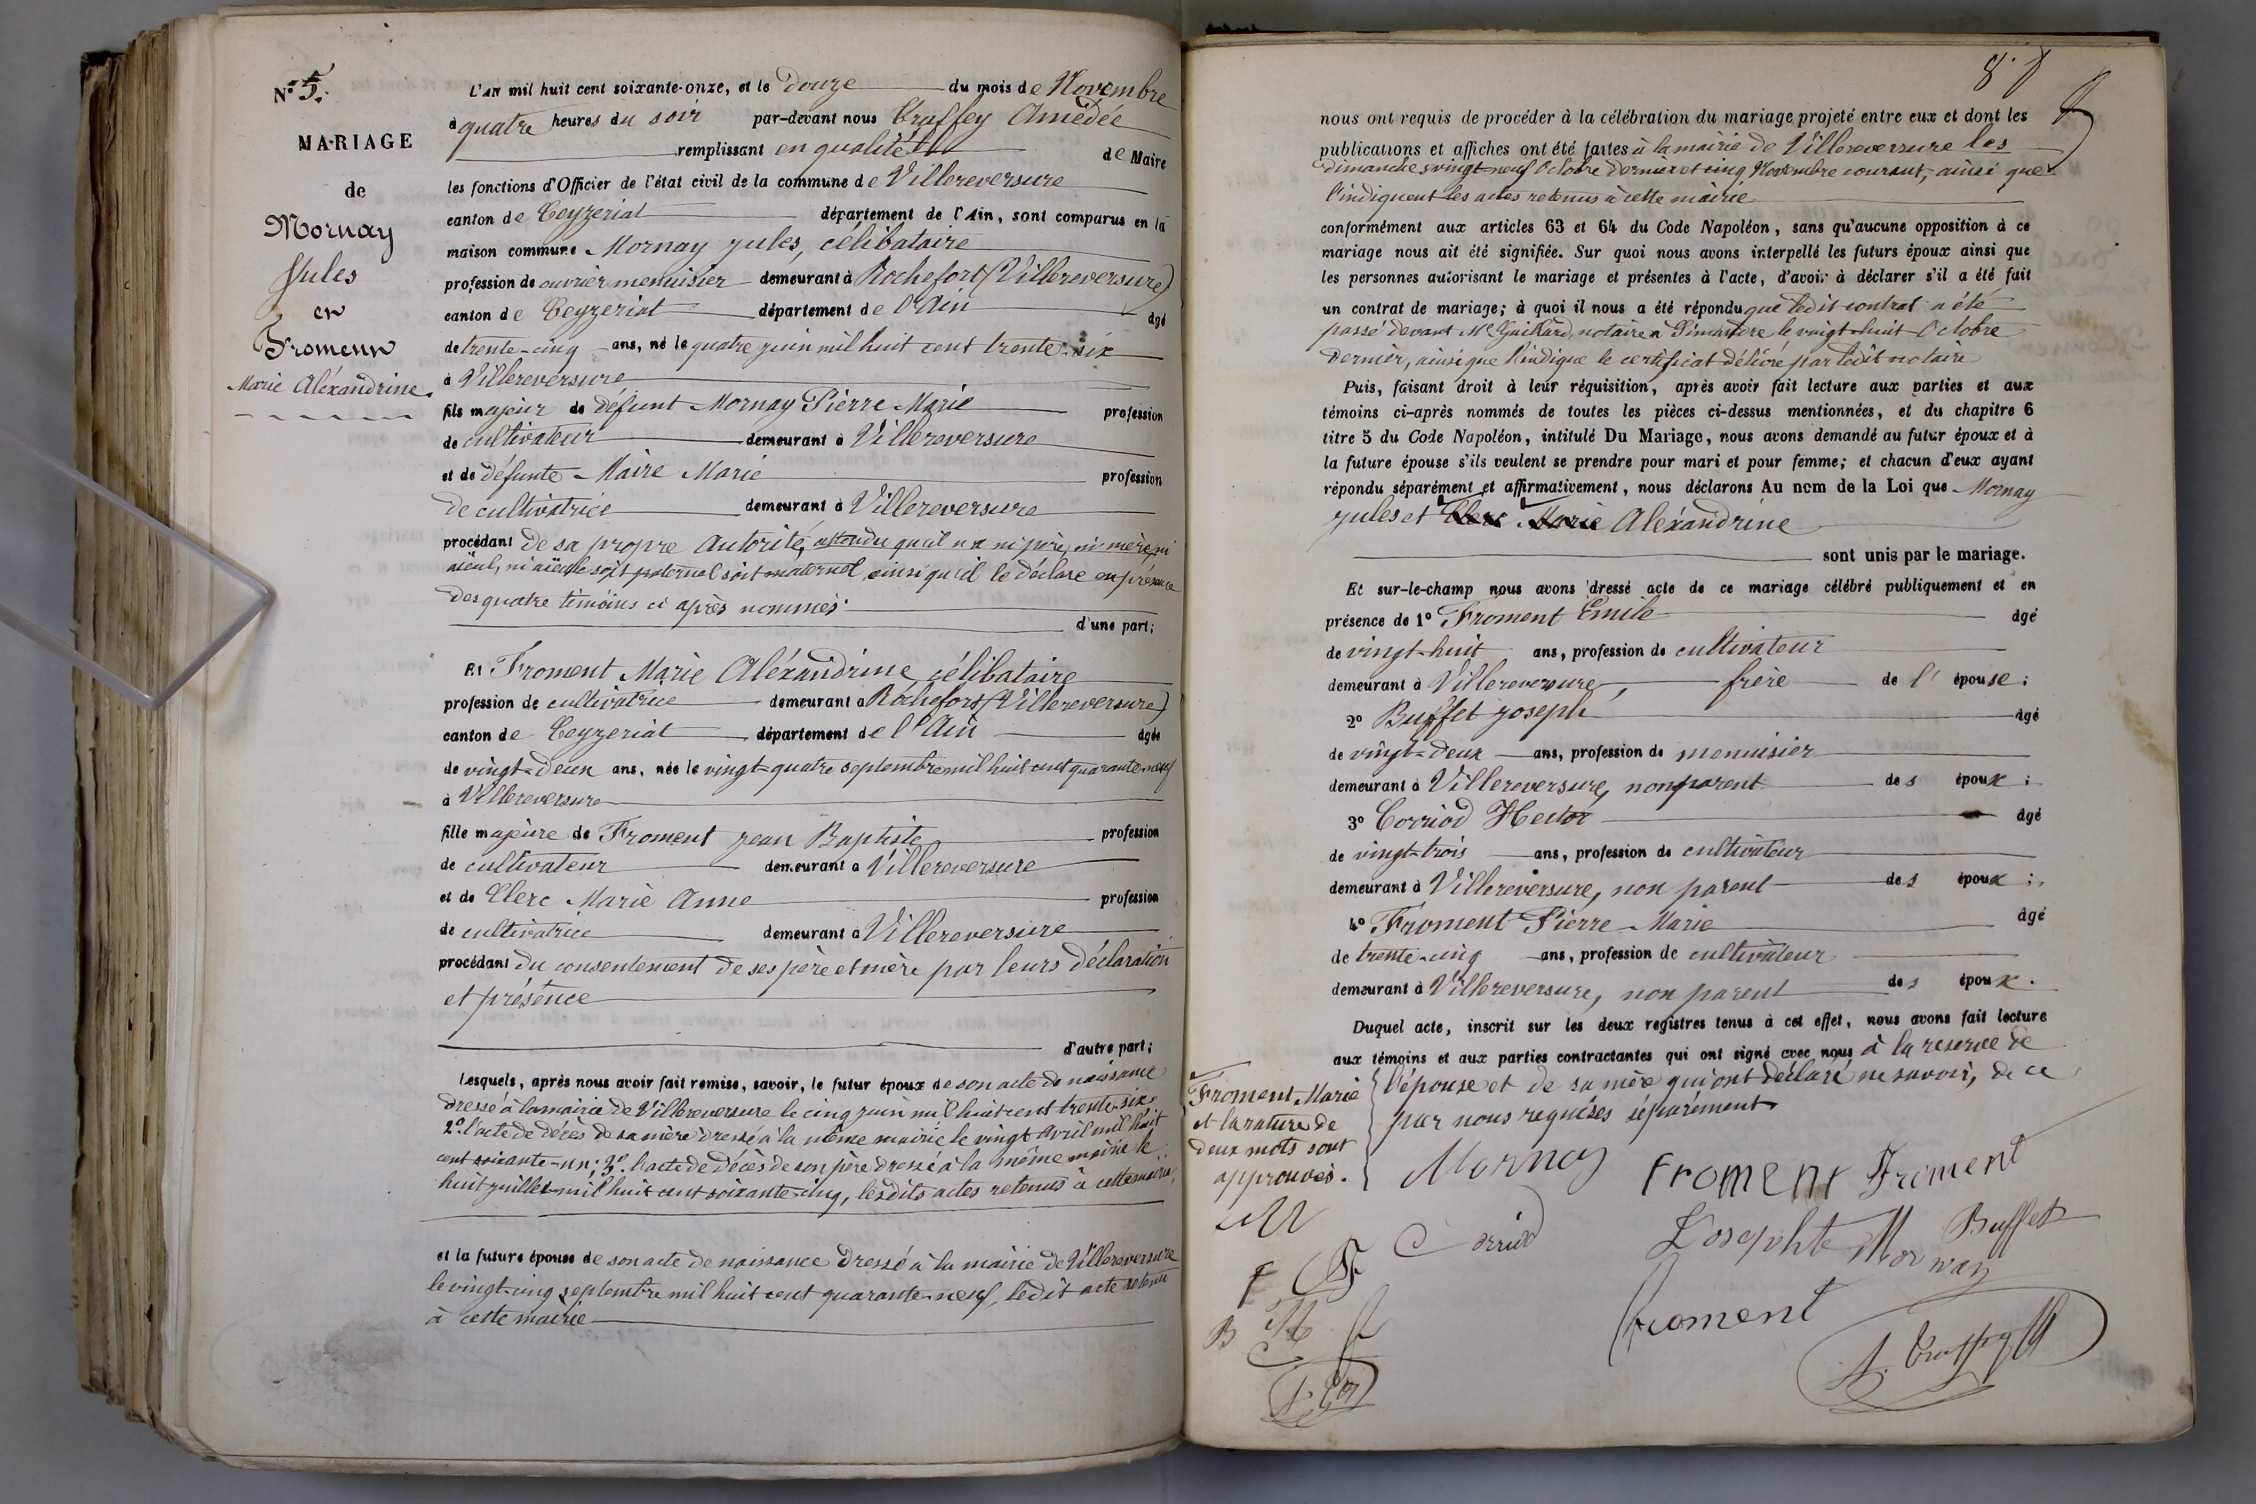 N° 5.
MARIAGE
de
Mornay
Jules
et
Froment
Marie Aléxandrine.
L'AN mil huit cent soixante-onze, et le Douze du mois de Novembre
à quatre heures du soir par-devant nous Amédée
remplissant en qualité de Maire
les fonctions d'Officier de l'état civil de la commune de Villereversure
canton de Ceyzeriat département de l'Ain, sont comparus en la
maison commune Mornay Jules, célibataire
profession de ouvrier menuisier demeurant à Rochefort (Villereversure)
canton de Ceyzeriat département de l'Ain âgé
de trente-cinq ans, né le quatre juin mil huit cent trente-six
à Villereversure
fils majeur de défunt Mornay Pierre Marie profession
de cultivateur demeurant à Villereversure
et de défunte Maire Marie profession
de cultivatrice demeurant à Villereversure
procédant de sa propre autorité, attendu qu'il n'a ni père, ni mère, ni
aïeul, ni aïeule soit paternel soit maternel, ainsi qu'il le déclare en présence
des quatre témoins ci après nommés
d'une part;
Et Froment Marie Aléxandrine célibataire
profession de cultivatrice demeurant à Rochefort (Villereversure)
canton de Ceyzeriat département de l'Ain âgée
de vingt-deux ans, née le vingt-quatre septembre mil huit cent quarante-neuf
à Villereversure
fille majeure de Froment Jean Baptiste profession
de cultivateur demeurant à Villereversure
et de Clerc Marie Anne profession
de cultivatrice demeurant à Villereversure
procédant du consentement de ses père et mère par leurs déclaration
et présence
d'autre part;
Lesquels, après nous avoir fait remise, savoir, le futur époux de son acte de naissance
dressé à la mairie de Villereversure le cinq juin mil huit cent trente-six
2° l'acte de décès de sa mère dressé à la même mairie le vingt avril mil huit
cent soixante-un; 3° l'acte de décès de son père dressé à la même mairie le
huit juillet mil huit cent soixante-cinq, lesdits actes retenus à cette mairie,
et la future épouse de son acte de naissance dressé à la mairie de Villereversure
le vingt-cinq septembre mil huit cent quarante-neuf, ledit acte retenu
à cette mairie
nous ont requis de procéder à la célébration du mariage projeté entre eux et dont les
publications et affiches ont été faites à la mairie de Villereversure les
dimanches vingt-neuf Octobre dernier et cinq Novembre courant, ainsi que
l'indiquent les actes retenus à cette mairie
conformément aux articles 63 et 64 du Code Napoléon, sans qu'aucune opposition à ce
mariage nous ait été signifiée. Sur quoi nous avons interpellé les futurs époux ainsi que
les personnes autorisant le mariage et présentes à l'acte, d'avoir à déclarer s'il a été fait
un contrat de mariage; à quoi il nous a été répondu que ledit contrat a été
passé devant Me notaire à Simandre le vingt-huit Octobre
dernier, ainsi que l'indique le certificat délivré par ledit notaire
Puis, faisant droit à leur réquisition, après avoir fait lecture aux parties et aux
témoins ci-après nommés de toutes les pièces ci-dessus mentionnées, et du chapitre 6
titre 5 du Code Napoléon, intitulé Du Mariage, nous avons demandé au futur époux et à
la future épouse s'ils veulent se prendre pour mari et pour femme; et chacun d'eux ayant
répondu séparément et affirmativement, nous déclarons Au nom de la Loi que Mornay
Jules et Clerc Marie Aléxandrine
sont unis par le mariage.
Et sur-le-champ nous avons dressé acte de ce mariage célébré publiquement et en
présence de 1° Froment Emile âgé
de vingt-huit ans, profession de cultivateur
demeurant à Villereversure, frère de l'épouse;
2° Buffet Joseph âgé
de vingt-deux ans, profession de menuisier
demeurant à Villereversure, non parent des époux;
3° Corriod Hector âgé
de vingt-trois ans, profession de cultivateur
demeurant à Villereversure, non parent des époux;
4° Froment Pierre Marie âgé
de trente-cinq ans, profession de cultivateur
demeurant à Villereversure, non parent des époux.
Duquel acte, inscrit sur les deux registres tenus à cet effet, nous avons fait lecture
aux témoins et aux parties contractantes qui ont signé avec nous à la réserve de
l'épouse et de sa mère qui ont déclaré ne savoir, de ce
par nous requises séparément
Froment Marie
et la rature de
deux mots sont
approuvés.
Mornay Froment Froment
Corriod Josephte Mornay Buffet
Froment